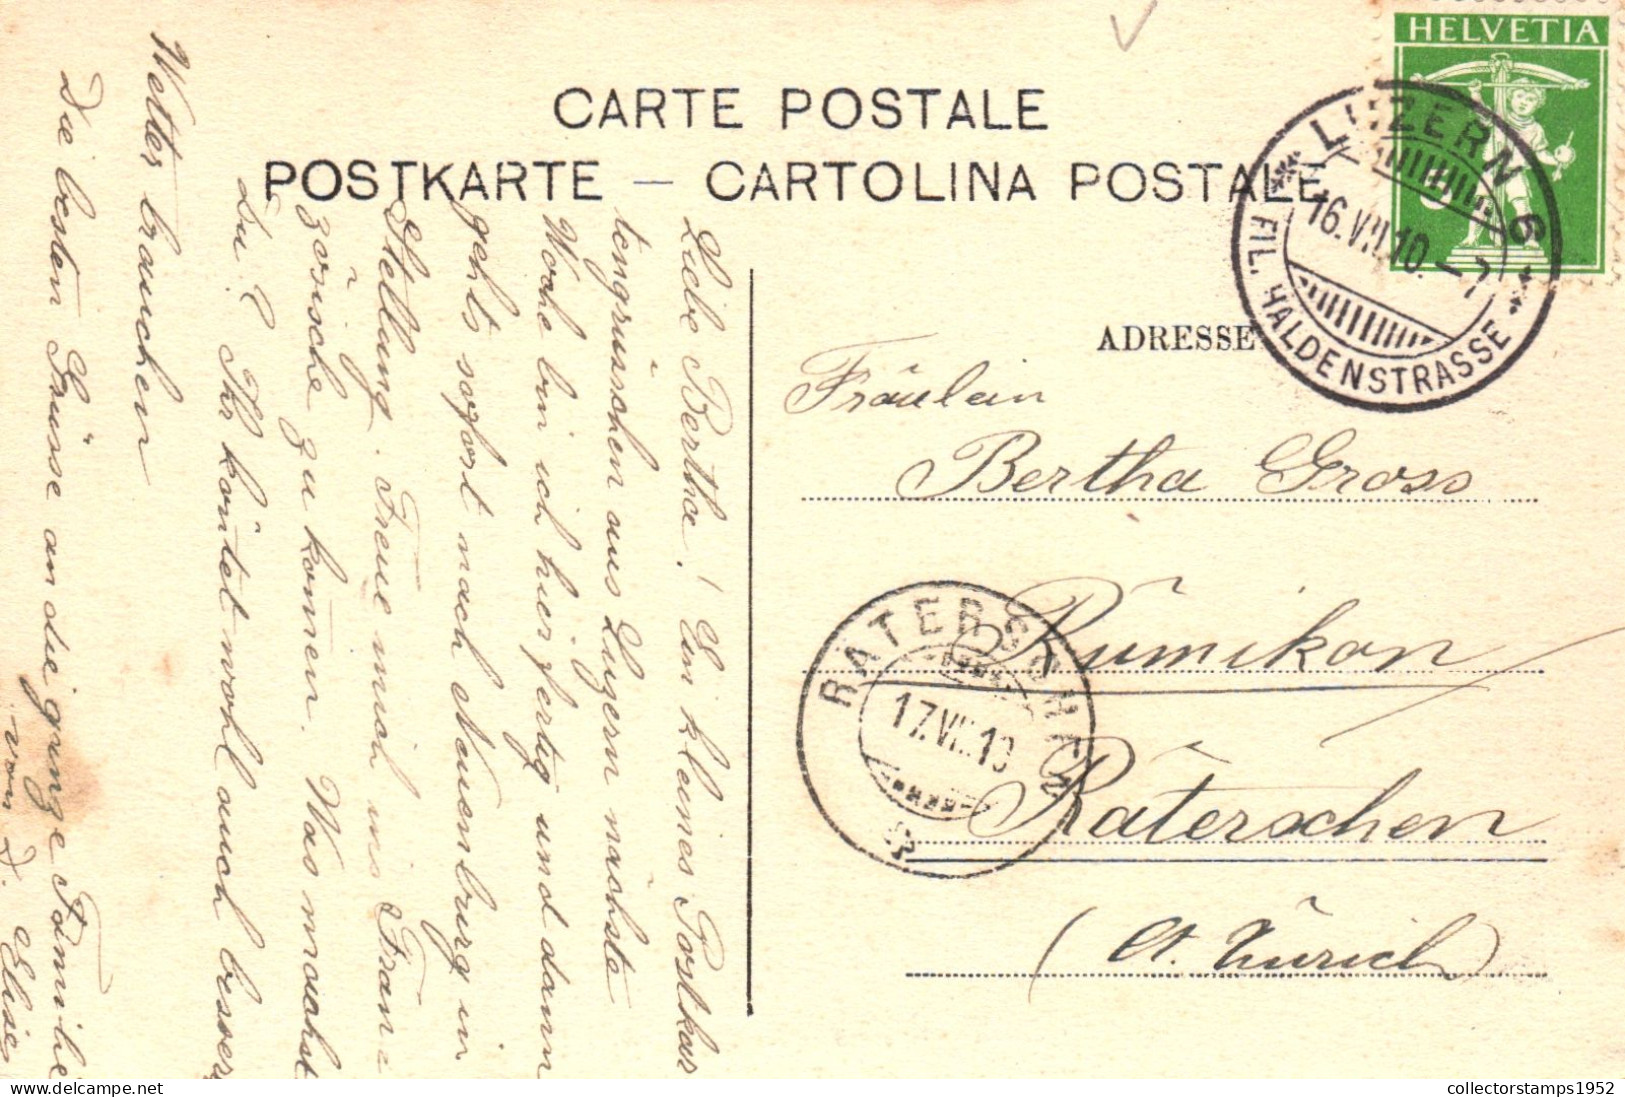 HELVETIA
CARTE POSTALE
POSTKARTE — CARTOLINA POSTALE
LUZERN 6
16.VII.10.–7
FIL. HALDENSTRASSE
ADRESSE
Fräulein
Bertha Gross
Rümikon
Räterschen
(Ct. Zürich)
RÄTERSCHEN
17.VII.10
Liebe Bertha! Ein kleines Postkar
tengrüsschen aus Luzern nächste
Woche bin ich hier fertig und dann
gehts sofort nach Neuenburg in
Stellung. Freue mich ins Fran=
zösische zu kommen. Was machst
du? Ihr könntet wohl auch besser
Wetter brauchen
Die besten Grüsse an die ganze Familie
von D. Elise
collectorstamps1952